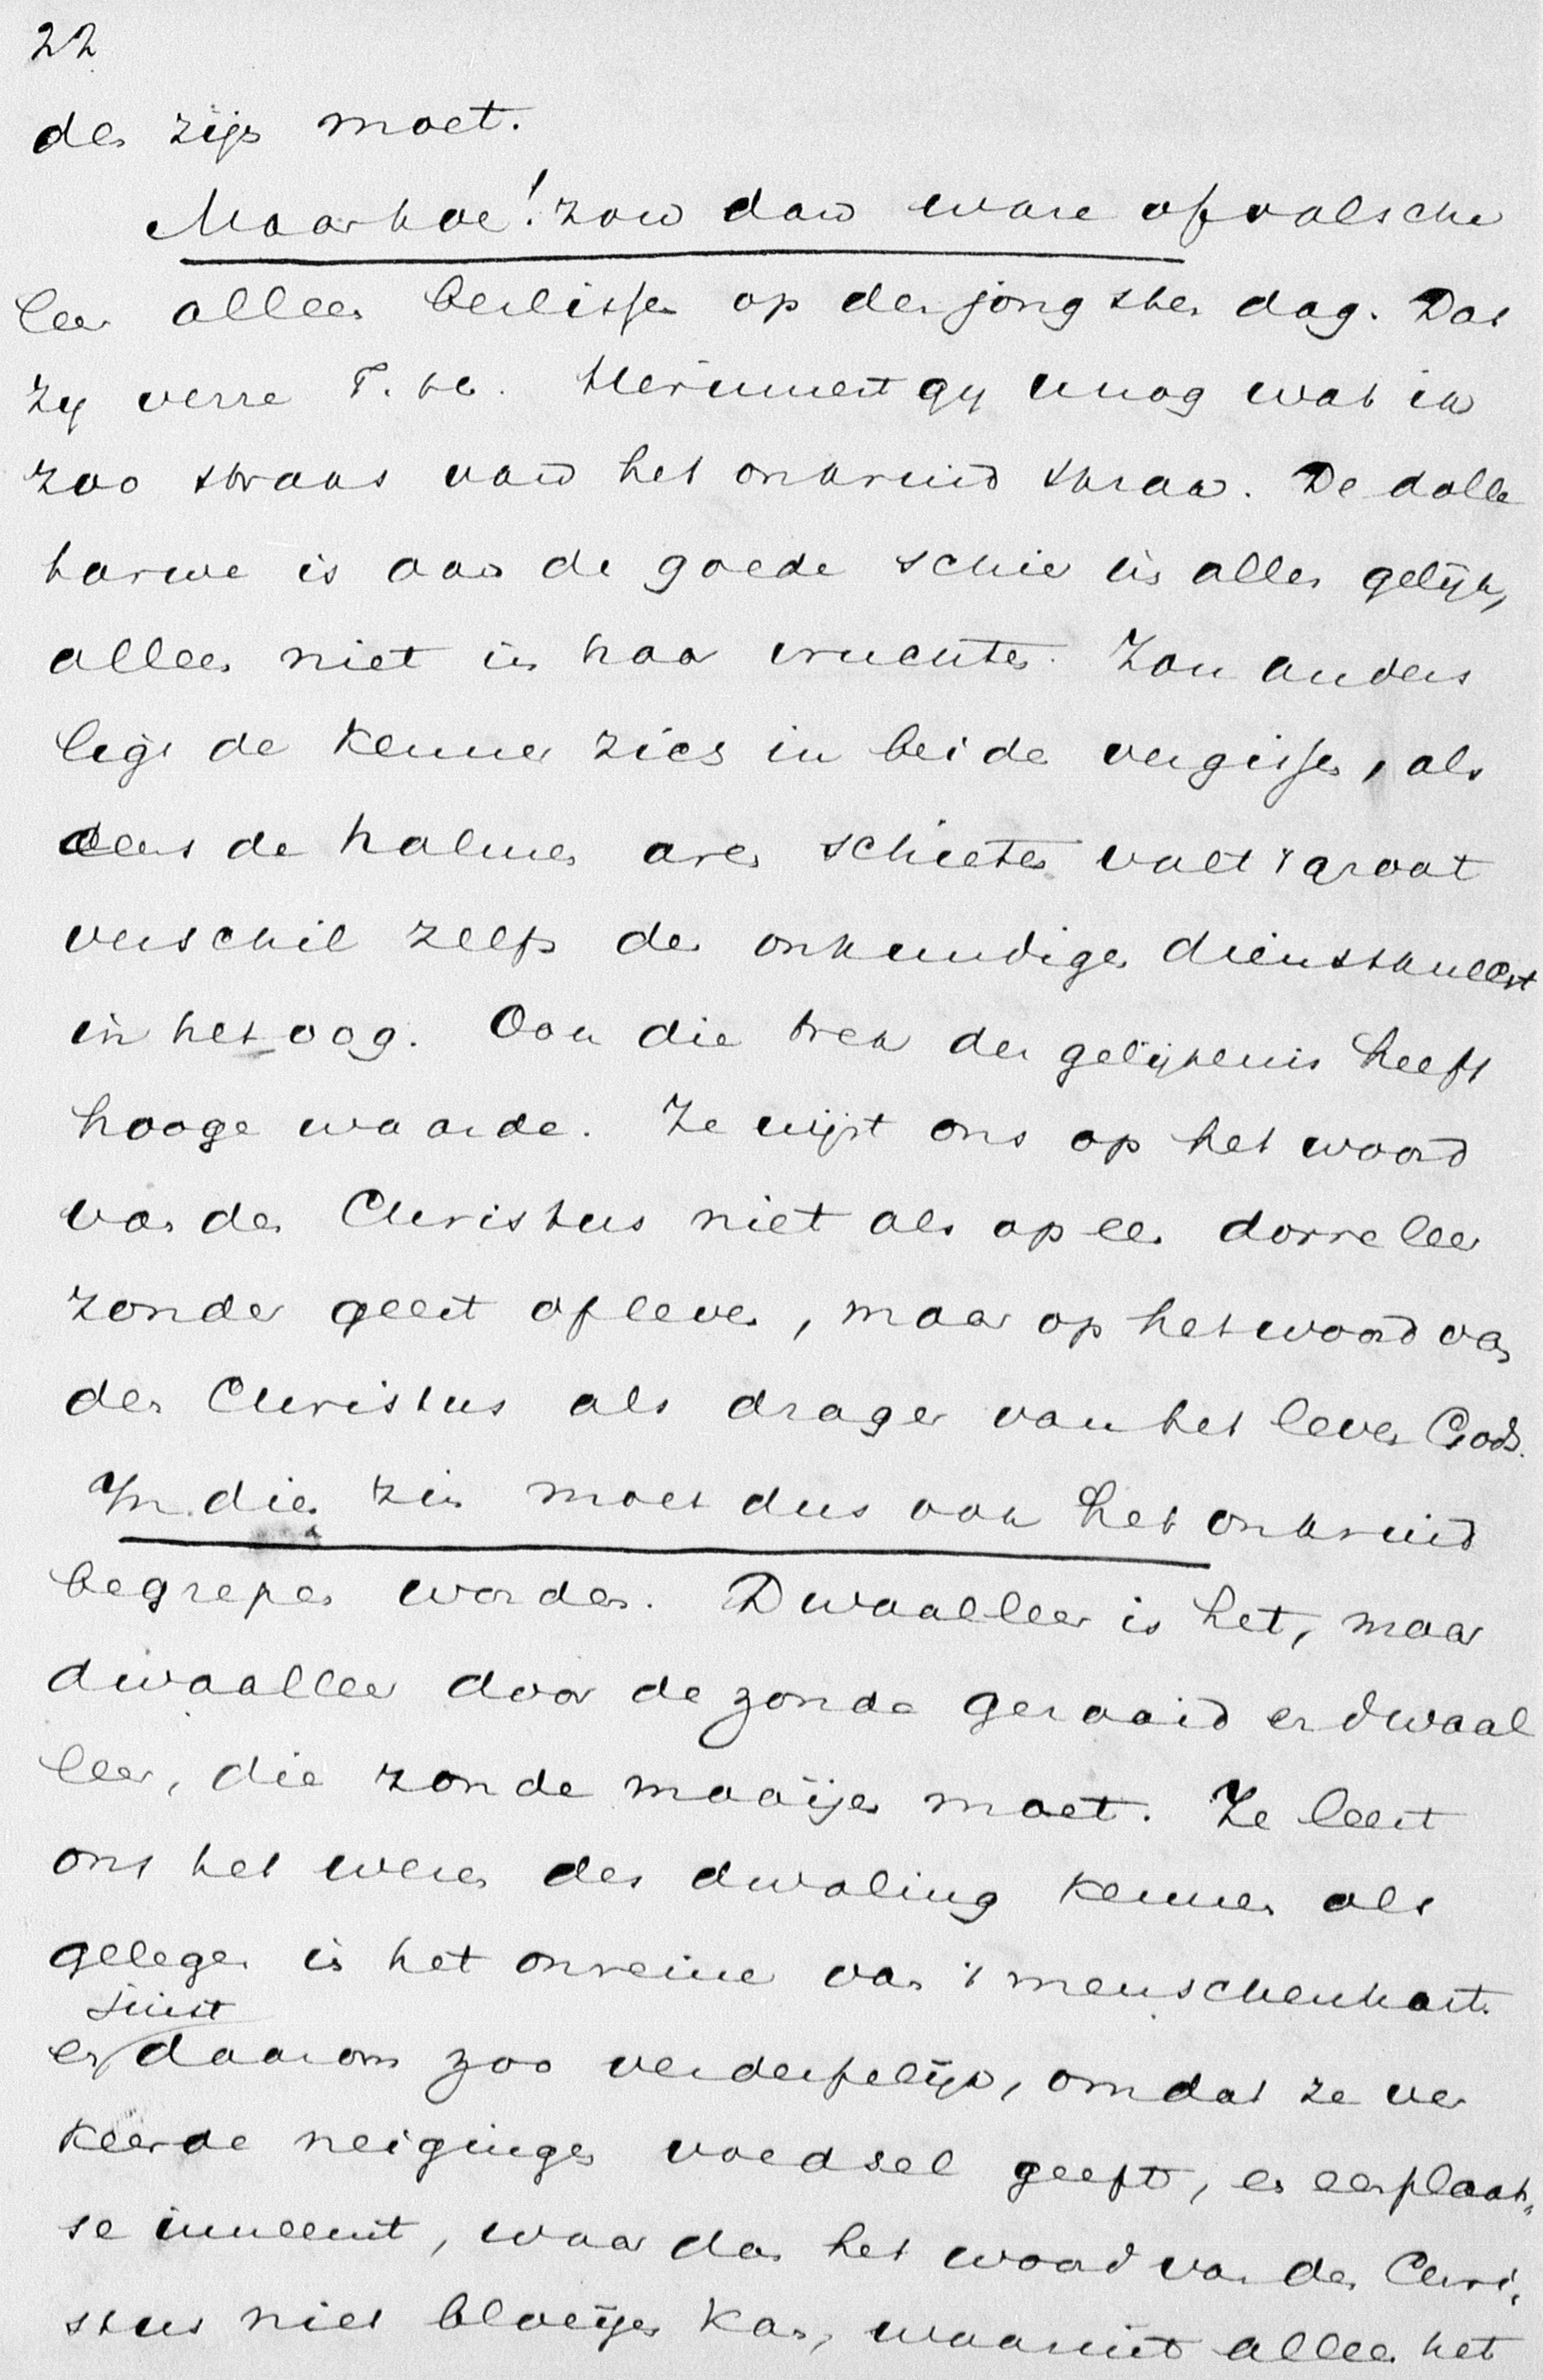 22
den zijn moet.
Maar hoe! zou dan ware of valsche
leer alleen beslissen op den jongsten dag. Dat
zy verre T. h. Herinnert gy u nog wat ik
zoo straks van het onkruid sprak. De dolle
tarwe is aan de goede schier in alles gelijk,
alleen niet in haar vruchten. Zou anders
ligt de kenner zich in beide vergissen, als
eens de halmen aren schieten valt 't groot
verschil zelfs den onkundigen dienstknecht
in het oog. Ook die trek der gelijkenis heeft
hooge waarde. Ze wijst ons op het woord
van den Christus niet als op een dorre leer
zonder geest of leven, maar op het woord van
den Christus als drager van het leven Gods.
In dien zin moet dus ook het onkruid
begrepen worden. Dwaalleer is het, maar
dwaalleer door de zonde gezaaid en dwaal
leer, die zonde maaijen moet. Ze leert
ons het wezen der dwaling kennen als
gelegen in het onreine van 't menschenhart
juist
en daarom zoo verderfelijk, omdat ze ver
keerde neigingen voedsel geeft, en een plaat,
se inneemt, waar dan het woord van den Chri,
stus niet bloeijen kan, waaruit alleen het